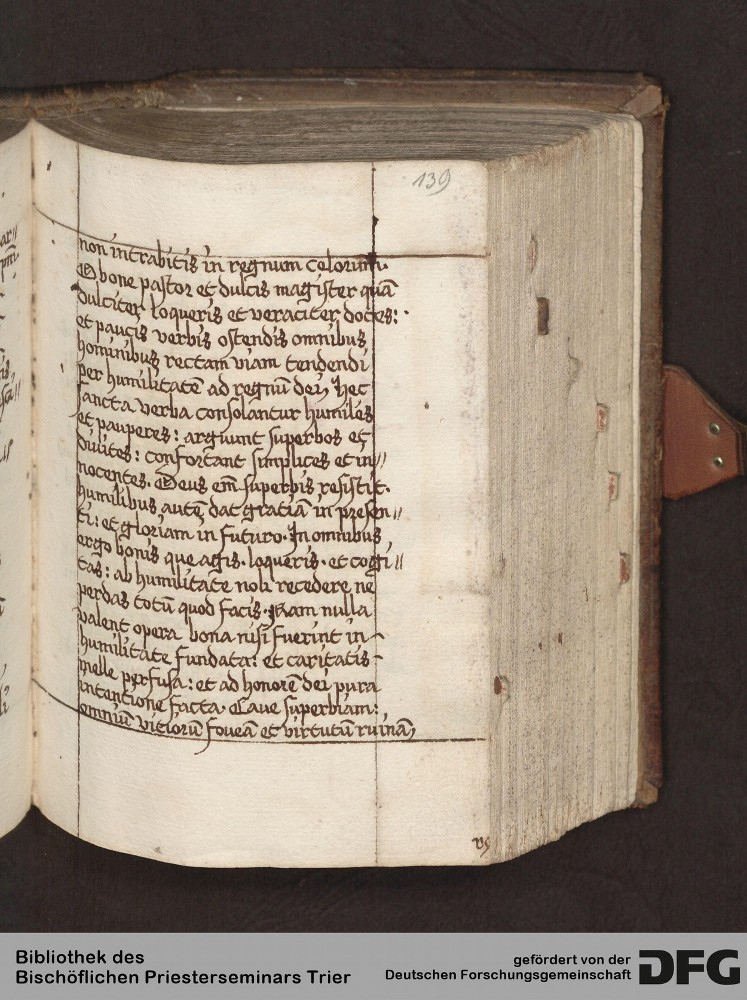 139
non intrabitis in regnum celorum.
O bone pastor et dulcis magister quā
dulciter loqueris et veraciter doces:
et paucis verbis ostendis omnibus
hominibus rectam viam tendendi
per humilitatē ad regnū dei, hec
sancta verba consolantur humiles
et pauperes: arguunt superbos et
divites: confortant simplices et in//
nocentes. Deus em̄ superbis resistit.
humilibus autē dat gratiā in presen//
ti: et gloriam in futuro. In omnibus
ergo bonis que agis. loqueris. et cogi//
tas: ab humilitate noli recedere ne
perdas totū quod facis. Nam nulla
valent opera bona nisi fuerint in
humilitate fundata: et caritatis
melle perfusa: et ad honorē dei pura
intencione facta. Cave superbiam:
omniū vitiorū foveā et virtutū ruinā,
Bibliothek des
Bischöflichen Priesterseminars Trier
gefördert von der
Deutschen Forschungsgemeinschaft
DFG